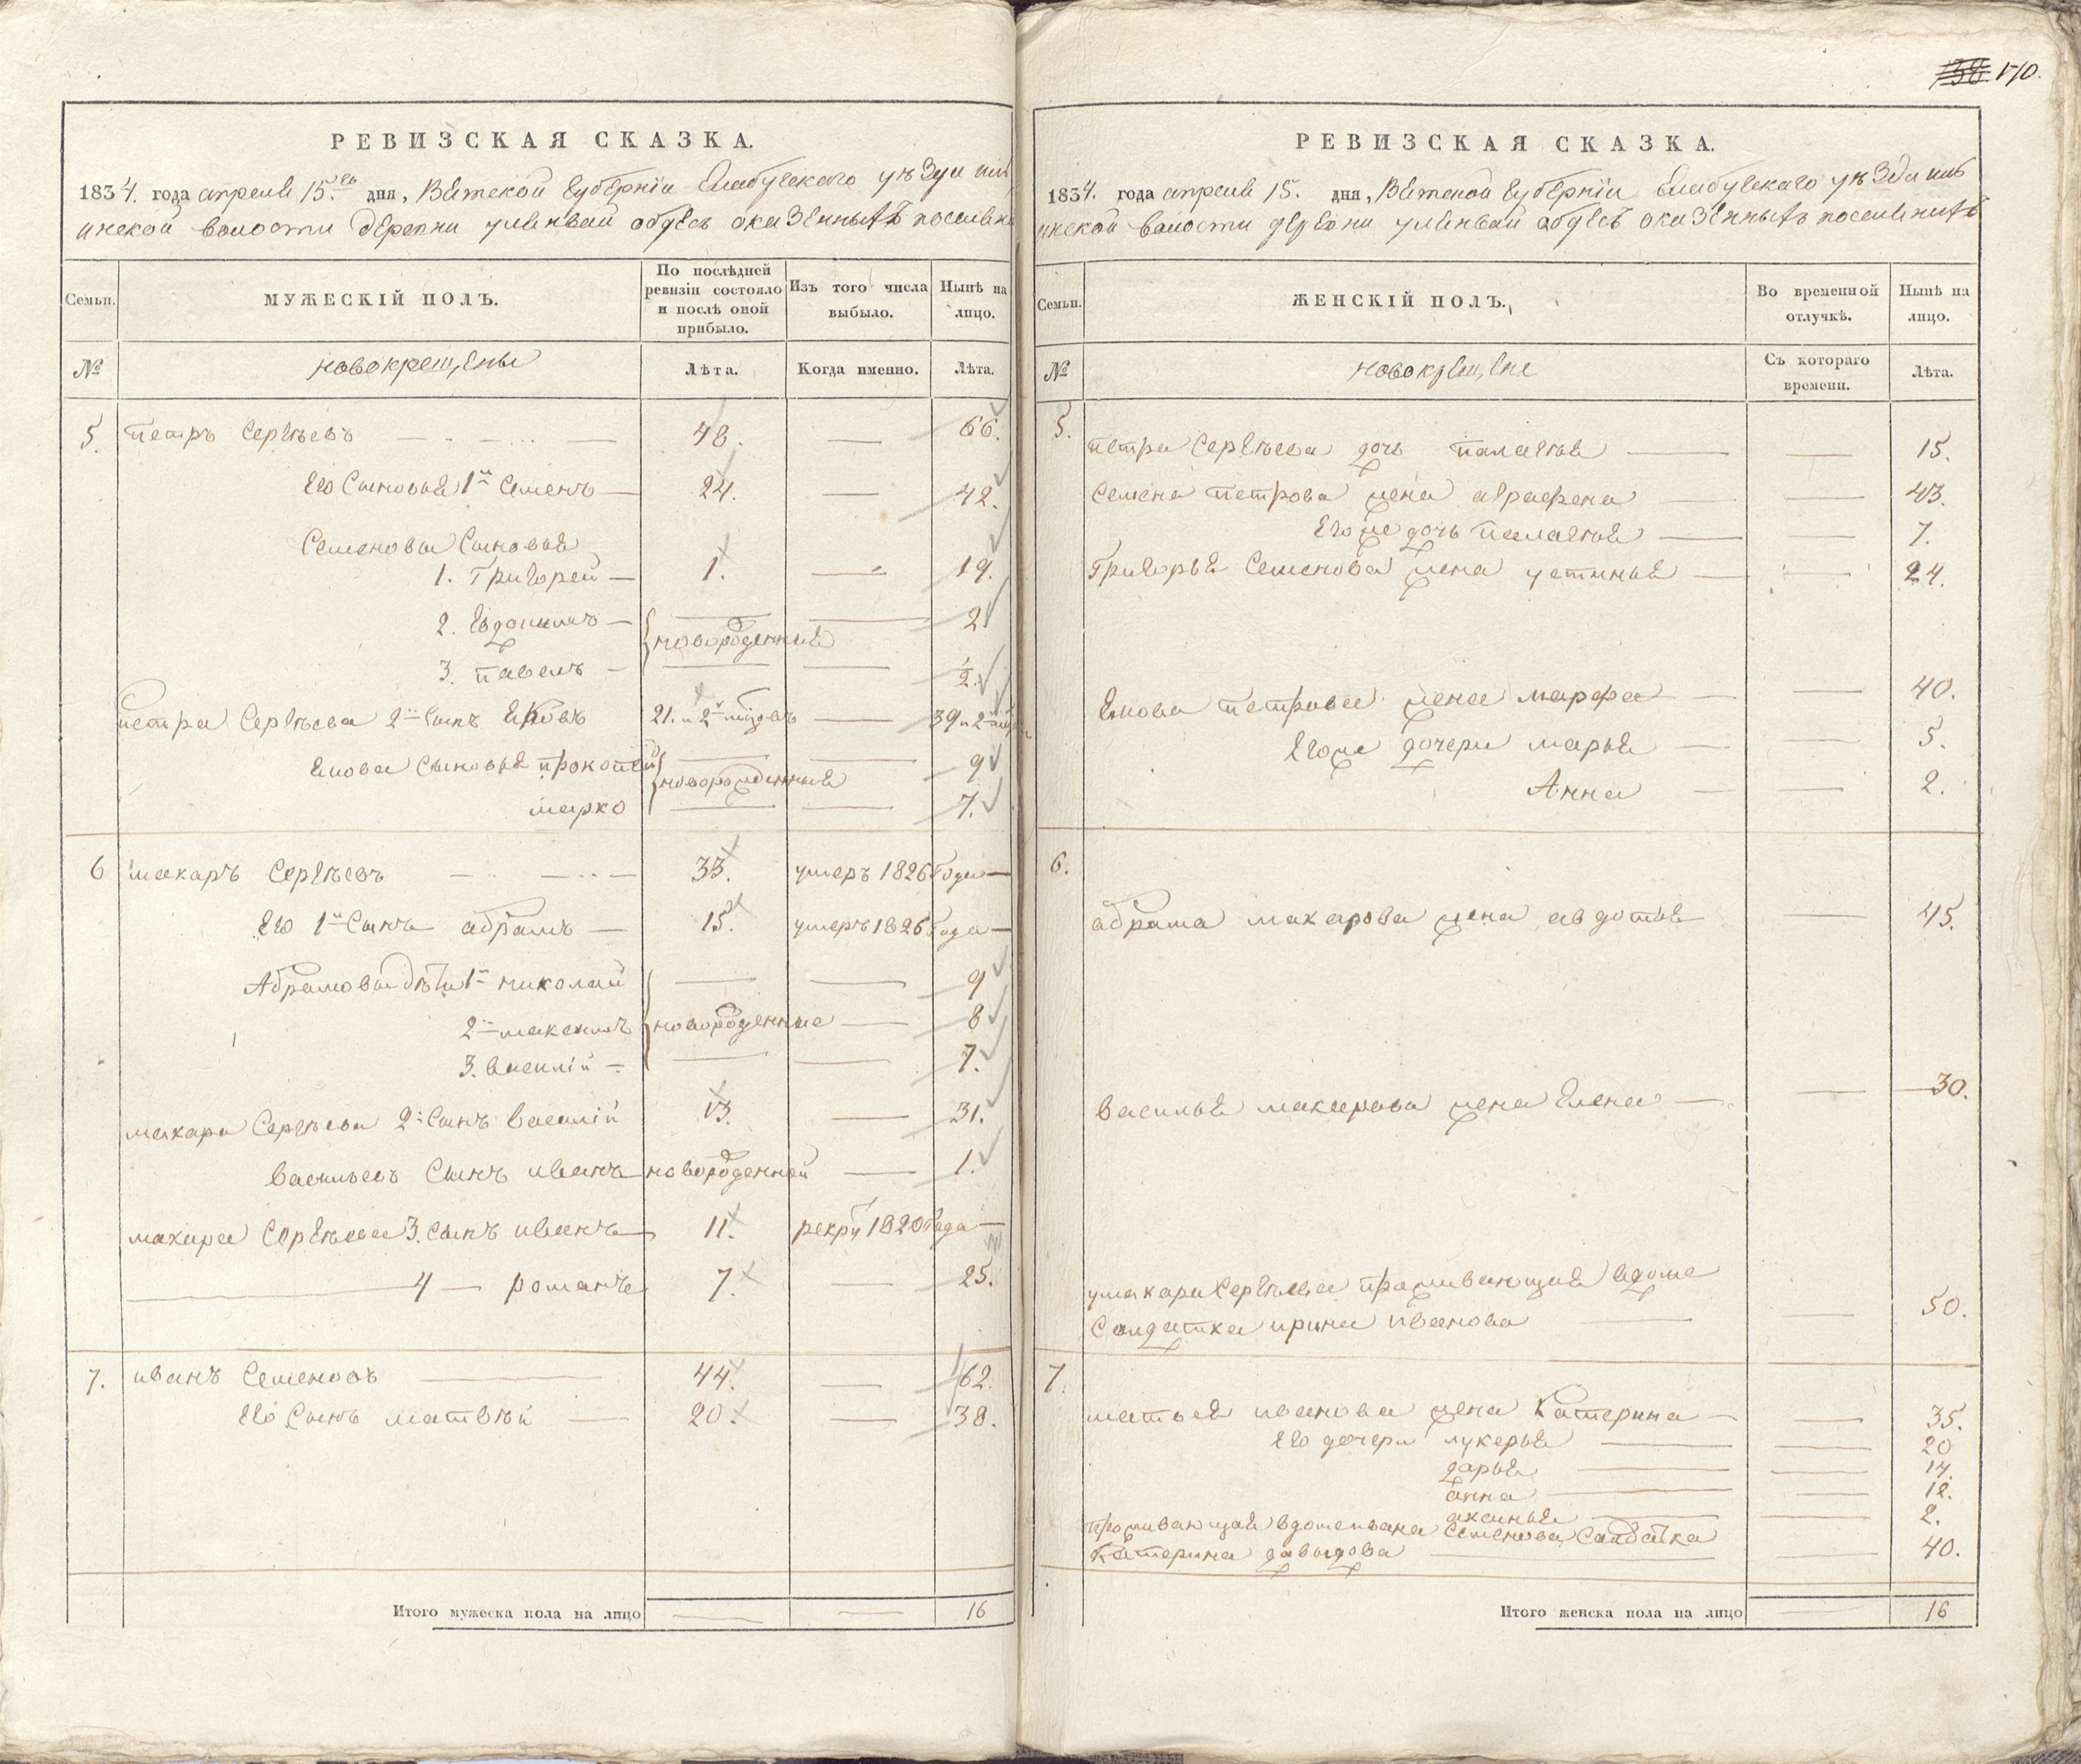 РЕВИЗСКАЯ СКАЗКА.
1834. года апреля 15.го дня, Вятской губернiи Елабугского уѣзда
инской волости деревни обдесъ оказенныхъ поселянъ
Семьи.
МУЖЕСКIЙ ПОЛЪ.
По послѣдней ревизiи состояло и послѣ оной прибыло.
Изъ того числа выбыло.
Нынѣ на лицо.
№
новокрещены
Лѣта.
Когда именно.
Лѣта.
5 петръ Сергѣевъ 48. — 66.
Его Сыновья 1й Семенъ — 24. — 42.
Семеновы Сыновья
1. Григорей — 1. — 19.
2. Евдокимъ — — — 2
новорожденныя
3. павелъ — — — ½.
петра Сергѣева 2й Сынъ Яковъ 21. и 2 — 39 и 2
Якова Сыновья прокопей — — 9
новорожденныя
марко — — 7.
6 макаръ Сергѣевъ 33. умеръ 1826 года —
Его 1й Сынъ абрамъ — 15. умеръ 1826 года —
Абрамовы дѣти 1й николай — — 9
2й максимъ новорожденные — 8
3. василiй — — — 7.
макара Сергѣева 2й Сынъ василiй 13. — 31.
васильевъ Сынъ иванъ новорожденной — 1.
макара Сергѣева 3. Сынъ иванъ 11. рекру 1820 года —
— 4 — романъ 7. — 25.
7. иванъ Семеновъ — 44. — 62.
Его Сынъ матвѣй — 20. — 38.
Итого мужеска пола на лицо — — 16
138. 170.
РЕВИЗСКАЯ СКАЗКА.
1834. года апреля 15. дня, Вятской губернiи Елабугского уѣзда
инской волости деревни обдесъ оказенныхъ поселянъ
Семьи.
ЖЕНСКIЙ ПОЛЪ.
Во временной отлучкѣ.
Нынѣ на лицо.
№
новокрещене
Съ котораго времени.
Лѣта.
5.
петра Сергѣева дочь палагѣя — — 15.
Семена петрова жена аграфена — — 43.
Его же дочь палагѣя — — 7.
Григорья Семенова жена устинья — — 24.
Якова петрова жена марфа — — 40.
Его же дочери марья — — 5.
Анна — — 2.
6.
абрама макарова жена авдотья — 45.
василья макарова жена Елена — — 30.
у макара Сергѣева проживающая вдоме
Солдатка ирина иванова — — 50.
7.
матвея иванова жена Катерина — — 35.
Его дочери лукерья — — 20
дарья — — 14.
анна — — 12.
аксинья — — 2.
проживающая вдоме ивана Семенова Салдатка
Катерина давыдова — — 40.
Итого женска пола на лицо — 16